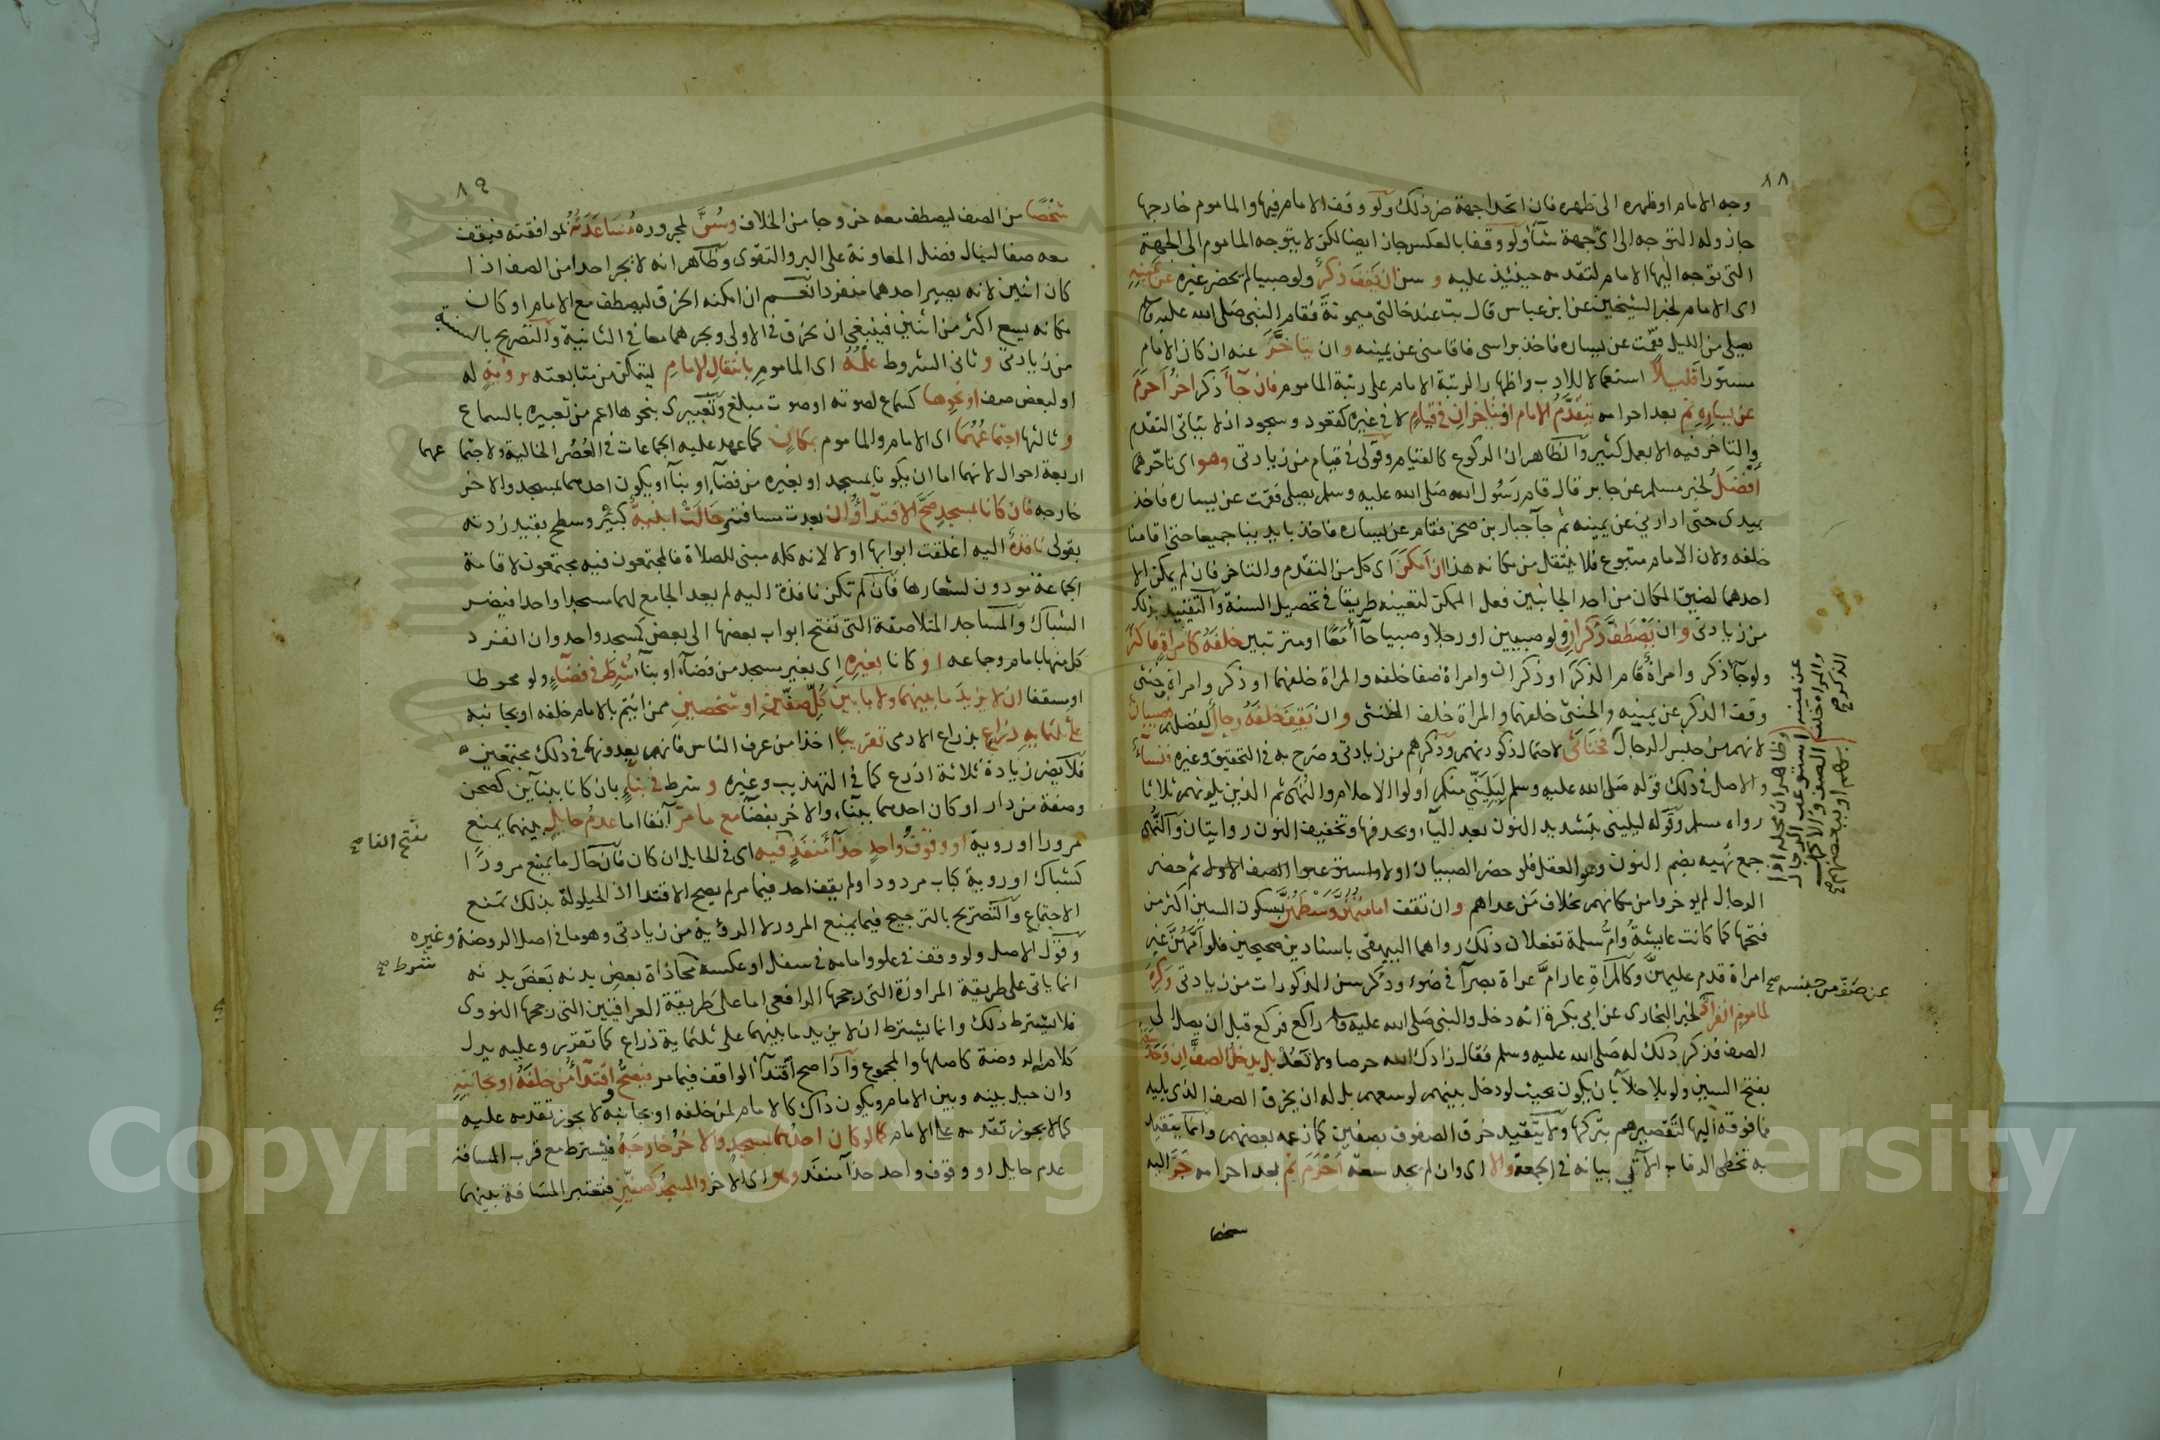 ٨٨
وجه الامام او ظهره الى ظهره فان اتحدا جهة ضر ذلك ولو وقف الامام فيها والماموم خارجها
جاز وله التوجه الى اي جهة شاء ولو وقفا بالعكس جاز ايضا لكن لا يتوجه الماموم الى الجهة
التي توجه اليها الامام لتقدمه حينئذ عليه و سن ان يقف ذكر ولو صبيا لم يحضر غيره عن يمينه
اي الامام لخبر الشيخين عن ابن عباس قال بت عند خالتي ميمونة فقام النبي صلى الله عليه وسلم
يصلي من الليل فقمت عن يساره فاخذ براسي فاقامني عن يمينه وان يتاخر عنه ان كان الامام
مستورا قليلا استعمالا للادب واظهارا لرتبة الامام على رتبة الماموم فان جاء ذكر اخر احرم
عن يساره ثم بعد احرامه يتقدم الامام او يتاخران في قيام لا في غيره كقعود وسجود اذ لا يتاتى التقدم
والتاخر فيه الا بعمل كثير والظاهر ان الركوع كالقيام وقولي في قيام من زيادتي وهو اي تاخرهما
افضل لخبر مسلم عن جابر قال قام رسول الله صلى الله عليه وسلم يصلي فقمت عن يساره فاخذ
بيدي حتى ادارني عن يمينه ثم جاء جبار بن صخر فقام عن يساره فاخذ بايدينا جميعا حتى اقامنا
خلفه ولان الامام متبوع فلا ينتقل من مكانه هذا ان امكن اي كل من التقدم والتاخر فان لم يمكن الا
احدهما لضيق المكان من احد الجانبين فعل الممكن لتعينه طريقا في تحصيل السنة والتقييد بذلك
من زيادتي وان يصطف ذكران ولو صبيين او رجلا وصبيا جاآ معا او مترتبين خلفه كامراة فاكثر
ولو جاء ذكر وامراة قام الذكر او ذكران وامراة صفا خلفه والمراة خلفهما او ذكر وامراة وخنثى
وقف الذكر عن يمينه والخنثى خلفهما والمراة خلف الخنثى وان يقف خلفه رجال لفضلهم فصبيان
لانهم من جنس الرجال فخناثى لاحتمال ذكورتهم وذكرهم من زيادتي وصرح به في التحقيق وغيره فنساء
والاصل في ذلك قوله صلى الله عليه وسلم ليليني منكم اولوا الاحلام والنهى ثم الذين يلونهم ثلاثا
رواه مسلم وقوله ليليني بتشديد النون بعد الياء وبحذفها وتخفيف النون روايتان والنهى
جمع نهيه بضم النون وهو العقل فلو حضر الصبيان اولا واستوعبوا الصف الاول ثم حضر
الرجال لم يوخروا من مكانهم بخلاف من عداهم وان تقف امامتهن وسطهن بسكون السين اكثر من
فتحها كما كانت عايشة وام سلمة تفعلان ذلك رواهما البيهقي باسنادين صحيحين فلو امهن غير
امراة قدم عليهن وكالمراة عار ام عراة بصراء في ضوء وذكر سن المذكورات من زيادتي وكره
لماموم انفراد لخبر البخاري عن ابي بكرة انه دخل والنبي صلى الله عليه وسلم راكع فركع قبل ان يصل الى
الصف فذكر ذلك له صلى الله عليه وسلم فقال زادك الله حرصا ولا تعد بل يدخل الصف ان وجد سعة
بفتح السين ولو بلا خلاء بان يكون بحيث لو دخل بينهم لوسعهم بل له ان يخرق الصف الذي يليه
فما فوقه اليها لتقصيرهم بتركها ولا يتقيد خرق الصفوف بصفين كما زعمه بعضهم وانما يتقيد
به تخطي الرقاب الآتي بيانه في الجمعة والا اي وان لم يجد سعة احرم ثم بعد احرامه جر اليه
شخصا
عن صف من جنسه صح
عن يمينه والمراة خلف الذكر صح
٨٩
شخصا من الصف ليصطف معه خروجا من الخلاف وسن لمجروره مساعدته لموافقته فيقف
معه صفا لينال فضل المعاونة على البر والتقوى وظاهر انه لا يجر احدا من الصف اذا
كان اثنين لانه يصير احدهما منفردا نعم ان امكنه الخرق ليصطف مع الامام او كان
مكانه يسع اكثر من اثنين فينبغي ان يخرق في الاولى ويجرهما معا في الثانية والتصريح بالسنية
من زيادتي و ثاني الشروط علمه اي الماموم بانتقال الامام ليتمكن من متابعته بروية له
او لبعض صف او نحوها كسماع لصوته او صوت مبلغ وتعبيري بنحوها اعم من تعبيره بالسماع
و ثالثها اجتماعهما اي الامام والماموم بمكان كما عهد عليه الجماعات في العصر الخالية ولاجتماعهما
اربعة احوال لانهما اما ان يكونا بمسجد او بغيره من فضاء او بناء او يكون احدهما بمسجد والاخر
خارجه فان كانا بمسجد صح الاقتداء وان بعدت مسافته وحالت ابنية كبئر وسطح بقيد زدته
بقولي نافذة اليه اغلقت ابوابها اولا لانه كله مبني للصلاة فالمجتمعون فيه مجتمعون لاقامة
الجماعة مودون لشعارها فان لم تكن نافذة اليه لم يعد الجامع لهما مسجدا واحدا فيضر
الشباك والمساجد المتلاصقة التي تفتح ابواب بعضها الى بعض كمسجد واحد وان انفرد
كل منها بامام وجماعه او كانا بغيره اي بغير مسجد من فضاء او بناء شرط في فضاء ولو محوطا
او مسقفا ان لا يزيد ما بينهما ولا ما بين كل صفين او شخصين ممن ائتم بالامام خلفه او بجانبه
على ثلثماية ذراع بذراع الادمي تقريبا اخذا من عرف الناس فانهم يعدونها في ذلك مجتمعين
فلا يضر زيادة ثلاثة اذرع كما في التهذيب وغيره و شرط في بناء بان كانا ببنآين كصحن
وصفة من دار او كان احدهما ببناء والاخر بفضاء مع ما مر آنفا اما عدم حايل بينهما يمنع
مرورا او روية او وقوف واحد حذآء منفذ فيه اي في الحايل ان كان فان حال ما يمنع مرورا
كشباك او روية كباب مردود او لم يقف احد فيما مر لم يصح الاقتدا اذ الحيلولة بذلك تمنع
الاجتماع والتصريح بالترجيح فيما يمنع المرور لا الروية من زيادتي وهو ما في اصل الروضة وغيره
وقول الاصل ولو وقف في علو وامامه في سفل او عكسه محاذاة بعض بدنه بعض بدنه
انما ياتي على طريقة المراوزة التي رجحها الرافعي اما على طريقة العراقيين التي رجحها النووي
فلا يشترط ذلك وانما يشترط ان لا يزيد ما بينهما على ثلثماية ذراع كما تقرر وعليه يدل
كلام الروضة كاصلها والمجموع واذا صح اقتداء الواقف فيما مر فيصح اقتداء من خلفه او بجانبه
وان حيل بينه وبين الامام ويكون ذاك كالامام لمن خلفه او بجانبه لا يجوز تقدمه عليه
كما لا يجوز تقدمه على الامام كما لو كان احدهما بمسجد والاخر خارجه فيشترط مع قرب المسافة
عدم حايل او وقوف واحد حذآء منفذ وهو اي الاخر والمسجد كصفين فتعتبر المسافة بينهما
بفتح الفا صح
شرط صح
Copyright © King Saud University